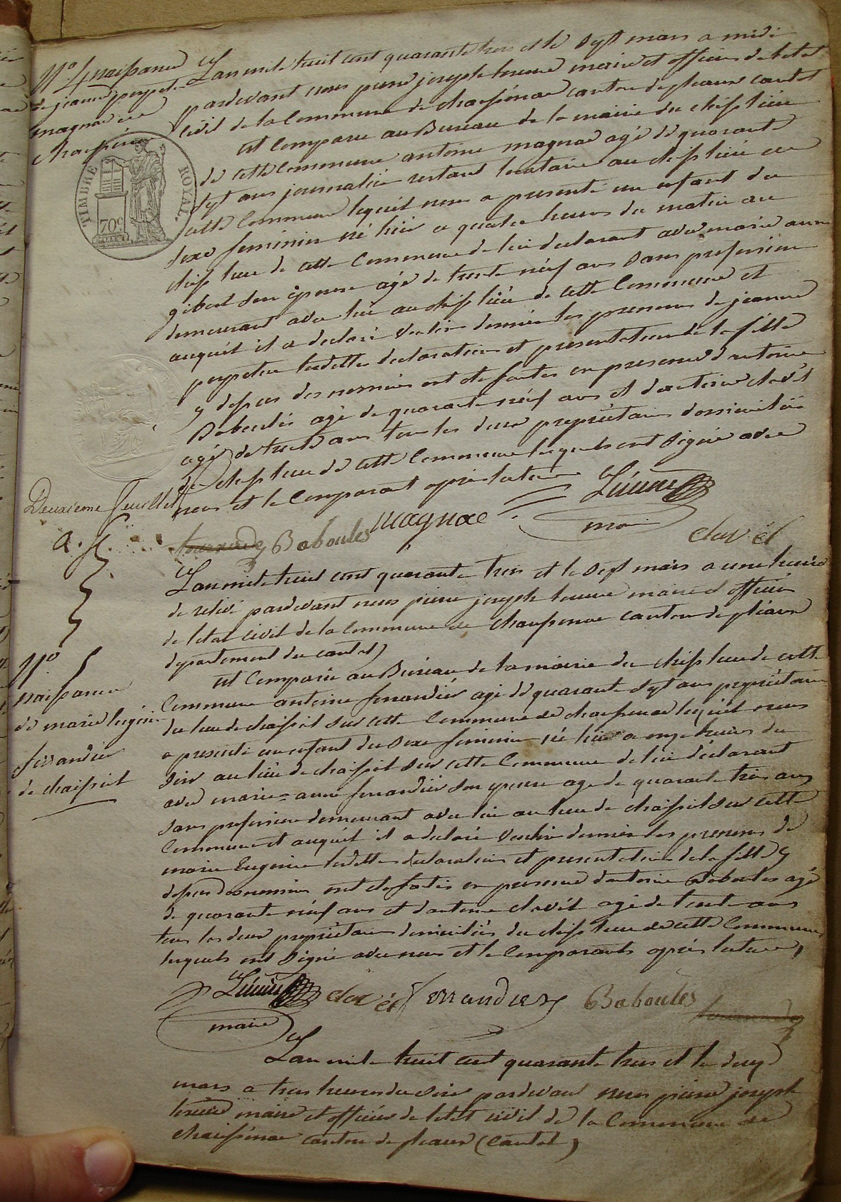 N.o 4 naissance
de jeanne perpetue
magnac de
chaussenac
TIMBRE ROYAL
70c
L'an mil huit cent quarante trois et le sept mars a midi
pardevant nous pierre joseph maire et officier de letat
civil de la Commune de chaussenac canton de pleaux cantal
est Comparu au Bureau de la mairie du chef lieu
de cette Commune antoine magnac agé de quarante
sept ans journalier restant au chef lieu de
cette Commune lequel nous a presenté un enfant du
sexe feminin né hier a quatre heures du matin au
chef lieu de cette Commune de lui declarant avec marie anne
gibert son épouse agé de trente neuf ans sans profession
demeurant avec lui au chef lieu de cette Commune et
auquel il a declaré vouloir donner les prenoms de jeanne
perpetue declaration et presentation de la fille
y depuis des nommées ont été faites en presence d'antoine
Baboules agé de quarante neuf ans et d'antoine clavel
agé de trente ans tous les deux propriétaires domiciliés
du chef lieu de cette Commune lesquels ont Signé avec
nous et le Comparant après lecture
Deuxieme feuillet
Baboules magnac
maire
clavel
L'an mil huit cent quarante trois et le sept mars a une heure
de relevé pardevant nous pierre joseph maire et officier
de letat civil de la Commune de chaussenac canton de pleaux
departement du cantal
N.o 5
naissance
de marie Eugénie
ferrandier
de chaissiol
est Comparu au Bureau de la mairie du chef lieu de cette
Commune antoine ferrandier agé de quarante sept ans propriétaire
du lieu de sur cette Commune de chaussenac lequel nous
a presenté un enfant du sexe feminin né hier a onze heures du
soir au lieu de sur cette Commune de lui déclarant
avec marie-anne ferrandier son épouse agé de quarante trois ans
sans profession demeurant avec lui au lieu de sur cette
Commune et auquel il a declaré vouloir donner les prenoms de
marie Eugénie declaration et presentation de la fille
depuis ont été faites en presence d'antoine Baboules agé
de quarante neuf ans et d'antoine clavel agé de trente ans
tous les deux propriétaires domiciliés du chef lieu de cette Commune
lesquels ont Signé avec nous et le Comparants après lecture
clavel ferrandier Baboules
maire
L'an mil huit cent quarante trois et le
mars a trois heures du soir pardevant nous pierre joseph
maire et officier de letat civil de la Commune de
chaussenac canton de pleaux (Cantal)